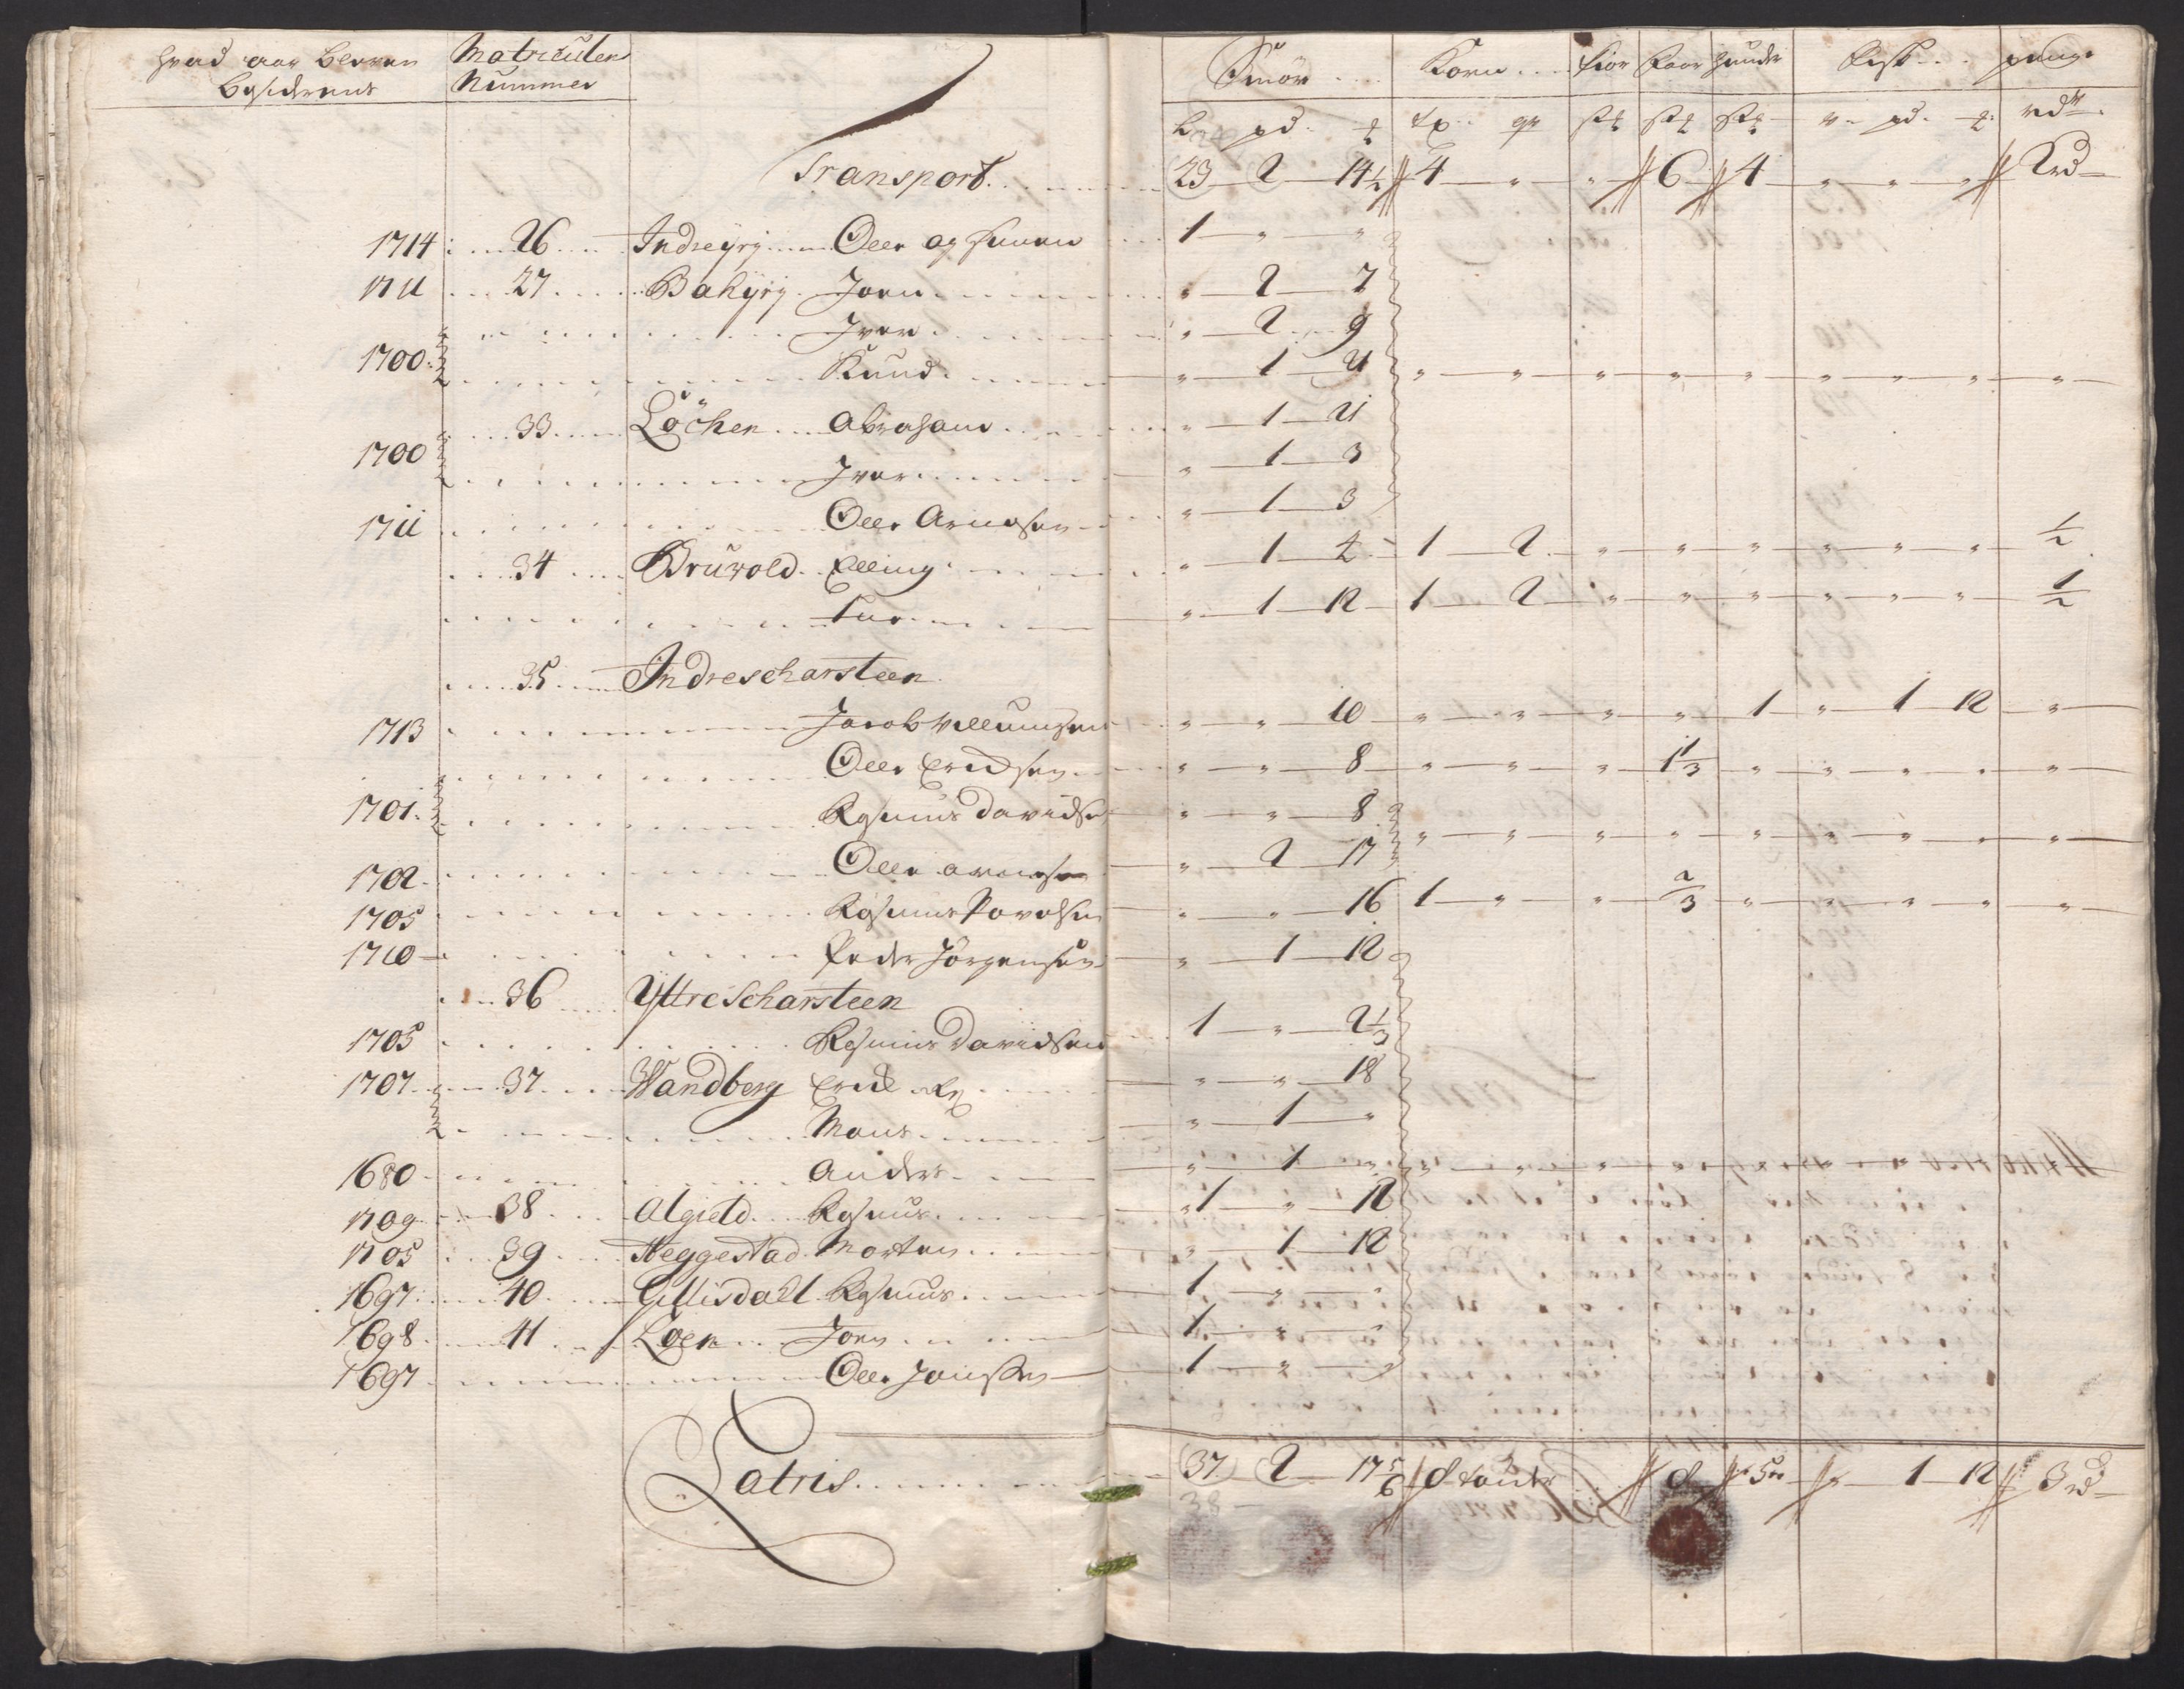 hvad aar bleven Matriculen Smör Korn Faar Huuder Fisk penge
Nummer
Transport 23 2 14½ 4 6 4 2 rd
1714 26 Indreyrj Oele og 1
1711 27 Bakyrj Joen 2 7
Iver 2 9
1700 Knud 1 11
33 Löchen Abraham 1 11
1700 Iver 1 3
1711 Oele Arnesen 1 3
34 Bruvold Elling 1 1 2 ½
1 12 1 2 ½
35 Indrescharsteen
1713 Jacob Willumsen 10 1 1 12
Oele Ericksen 8 1⅓
1701 Rasmus Davidsen 8
1702 Oele 2 17
1705 Rasmus Povelsen 16 1 ⅔
1710 Peder Jörgensen 1 12
36 Yttrescharsteen
1705 Rasmus Davidsen 1 2⅓
1707 37 Wandberg Erick 18
Mons 1
1680 Anders 1
1709 38 Algield Rasmus 1 12
1705 39 Heggestad Morten 1 12
1697 40 Gillisdall Rasmus 1
1698 41 Loen Joen 1
1697 Oele Jonsen 1
Latris 37 2 17⅚ 8 5 1 12 3 rd
38